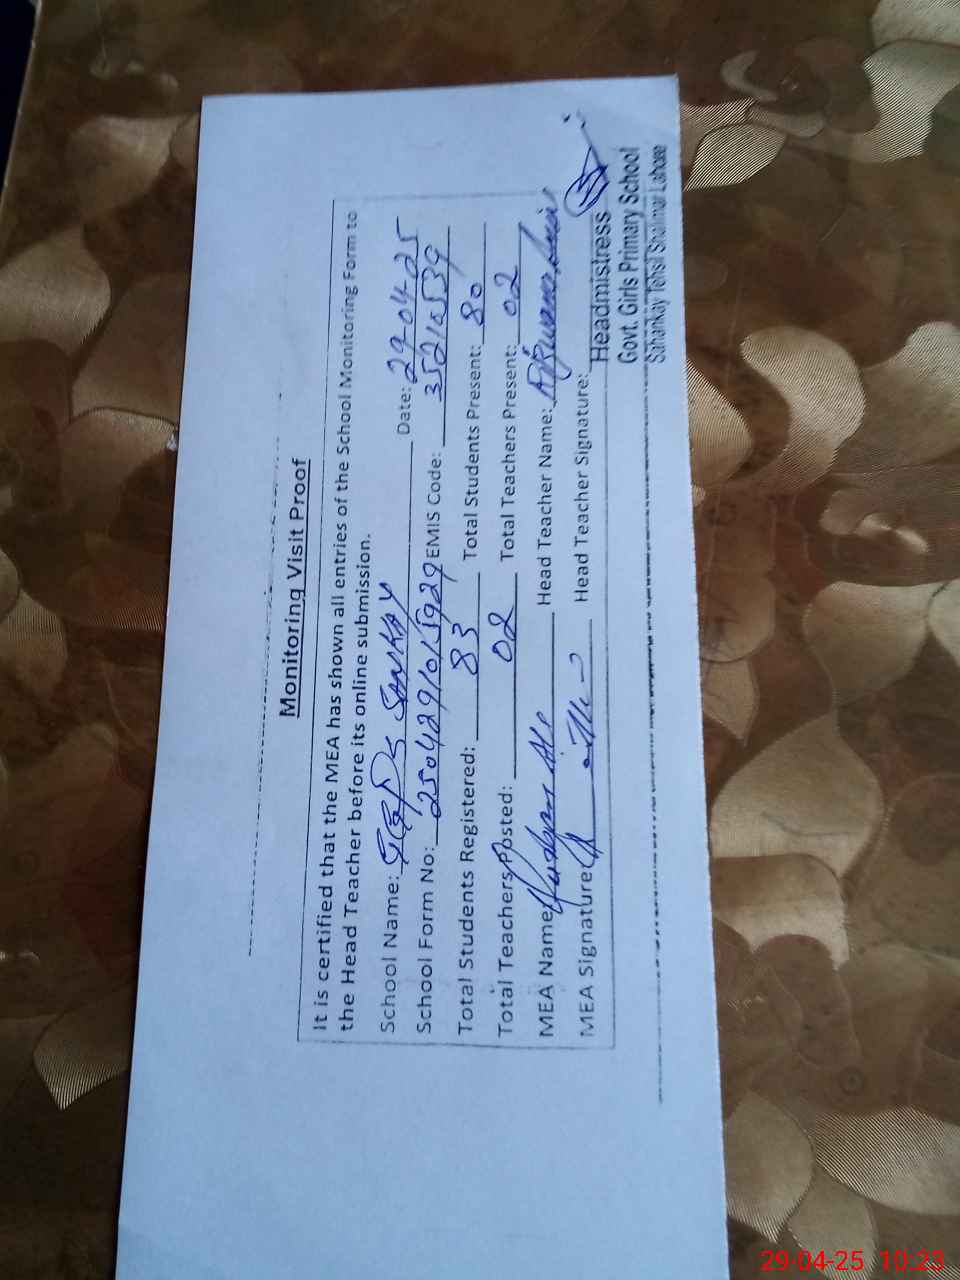 Monitoring Visit Proof
It is certified that the MEA has shown all entries of the School Monitoring Form to
the Head Teacher before its online submission.
School Name: GGPS Sankay Date: 29-04-25
School Form No: EMIS Code: 35210539
Total Students Registered: 83 Total Students Present: 80
Total Teachers Posted: 02 Total Teachers Present: 02
MEA Name Head Teacher Name:
MEA Signature Head Teacher Signature:
Headmistress
Govt. Girls Primary School
Sahankay Tehsil Shalimar Lahore
29-04-25 10:23